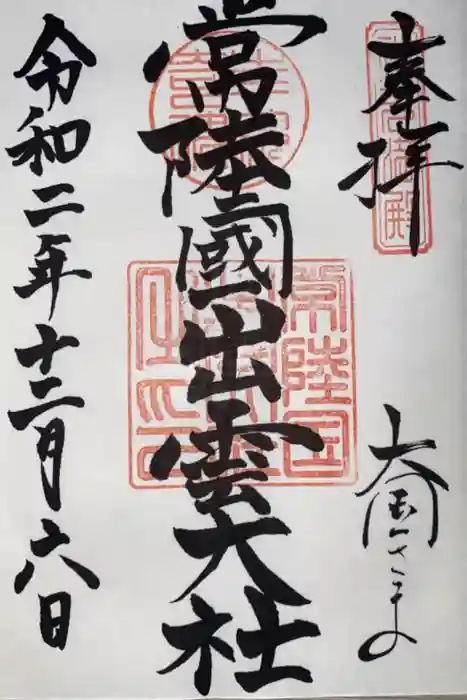 奉拝
大國さまの
常陸國出雲大社
令和二年十二月六日
常陸国